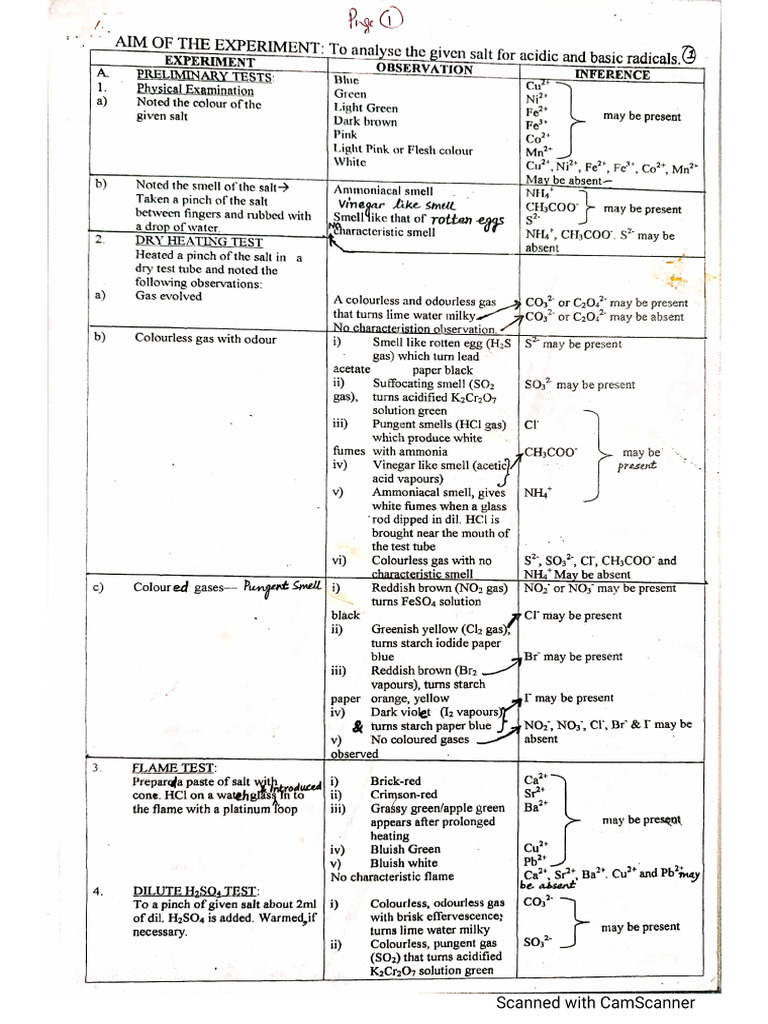 1.
Page 1
AIM OF THE EXPERIMENT: To analyse the given salt for acidic and basic radicals. 1
EXPERIMENT OBSERVATION INFERENCE
A. PRELIMINARY TESTS:
1. Physical Examination
a) Noted the colour of the
given salt
Blue
Green
Light Green
Dark brown
Pink
Light Pink or Flesh colour
White
Cu²⁺
Ni²⁺
Fe²⁺
Fe³⁺
Co²⁺
Mn²⁺
may be present
Cu²⁺, Ni²⁺, Fe²⁺, Fe³⁺, Co²⁺, Mn²⁺
May be absent—
b) Noted the smell of the salt→
Taken a pinch of the salt
between fingers and rubbed with
a drop of water.
Ammoniacal smell
Vinegar like smell
Smell like that of rotten eggs
No characteristic smell
NH₄⁺
CH₃COO⁻
S²⁻
may be present
NH₄⁺, CH₃COO⁻. S²⁻ may be
absent
2. DRY HEATING TEST
Heated a pinch of the salt in a
dry test tube and noted the
following observations:
a) Gas evolved
A colourless and odourless gas
that turns lime water milky
No characteristion observation.
CO₃²⁻ or C₂O₄²⁻ may be present
CO₃²⁻ or C₂O₄²⁻ may be absent
b) Colourless gas with odour
i) Smell like rotten egg (H₂S
gas) which turn lead
acetate paper black
ii) Suffocating smell (SO₂
gas), turns acidified K₂Cr₂O₇
solution green
iii) Pungent smells (HCl gas)
which produce white
fumes with ammonia
iv) Vinegar like smell (acetic
acid vapours)
v) Ammoniacal smell, gives
white fumes when a glass
rod dipped in dil. HCl is
brought near the mouth of
the test tube
vi) Colourless gas with no
characteristic smell
S²⁻ may be present
SO₃²⁻ may be present
Cl⁻
CH₃COO⁻
NH₄⁺
may be
present
S²⁻, SO₃²⁻, Cl⁻, CH₃COO⁻ and
NH₄⁺ May be absent
c) Coloured gases— Pungent Smell
i) Reddish brown (NO₂ gas)
turns FeSO₄ solution
black
ii) Greenish yellow (Cl₂ gas),
turns starch iodide paper
blue
iii) Reddish brown (Br₂
vapours), turns starch
paper orange, yellow
iv) Dark violet (I₂ vapours)
& turns starch paper blue
v) No coloured gases
observed
NO₂⁻ or NO₃⁻ may be present
Cl⁻ may be present
Br⁻ may be present
I⁻ may be present
NO₂⁻, NO₃⁻, Cl⁻, Br⁻ & I⁻ may be
absent
3. FLAME TEST:
Prepared a paste of salt with
conc. HCl on a watch glass & introduced in to
the flame with a platinum loop
i) Brick-red
ii) Crimson-red
iii) Grassy green/apple green
appears after prolonged
heating
iv) Bluish Green
v) Bluish white
No characteristic flame
Ca²⁺
Sr²⁺
Ba²⁺
Cu²⁺
Pb²⁺
may be present
Ca²⁺, Sr²⁺, Ba²⁺. Cu²⁺ and Pb²⁺ may
be absent
4. DILUTE H₂SO₄ TEST:
To a pinch of given salt about 2ml
of dil. H₂SO₄ is added. Warmed, if
necessary.
i) Colourless, odourless gas
with brisk effervescence;
turns lime water milky
ii) Colourless, pungent gas
(SO₂) that turns acidified
K₂Cr₂O₇ solution green
CO₃²⁻
SO₃²⁻
may be present
Scanned with CamScanner